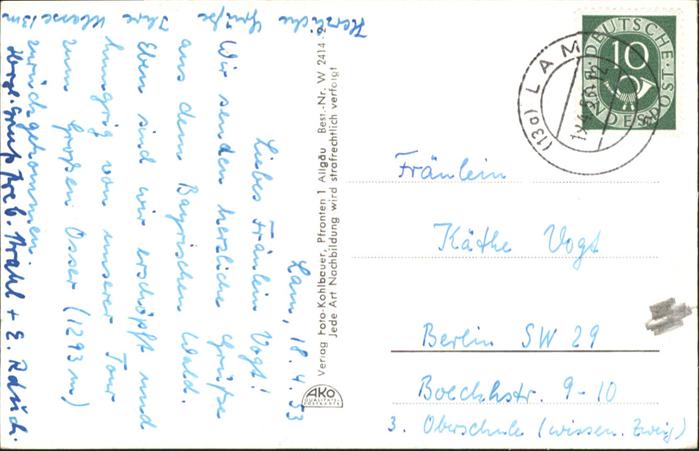 Lam, 18. 4. 53
Liebes Fräulein Vogt!
Wir senden herzliche Grüße
aus dem Bayrischen Wald.
Eben sind wir erschöpft und
hungrig von unserer Tour
zum Großen Osser (1293 m)
zurückgekommen.
Herzliche Grüße
Ihre Klasse 13m
Herzl. Gruß + E.
Verlag Foto-Kohlbauer, Pfronten 1 Allgäu Best.-Nr. W 2414-2
Jede Art Nachbildung wird strafrechtlich verfolgt
AKO
DEUTSCHE BUNDESPOST
10
(13a) LAM
Fräulein
Käthe Vogt
Berlin SW 29
Boeckhstr. 9-10
3. Oberschule (wissen. Zweig)